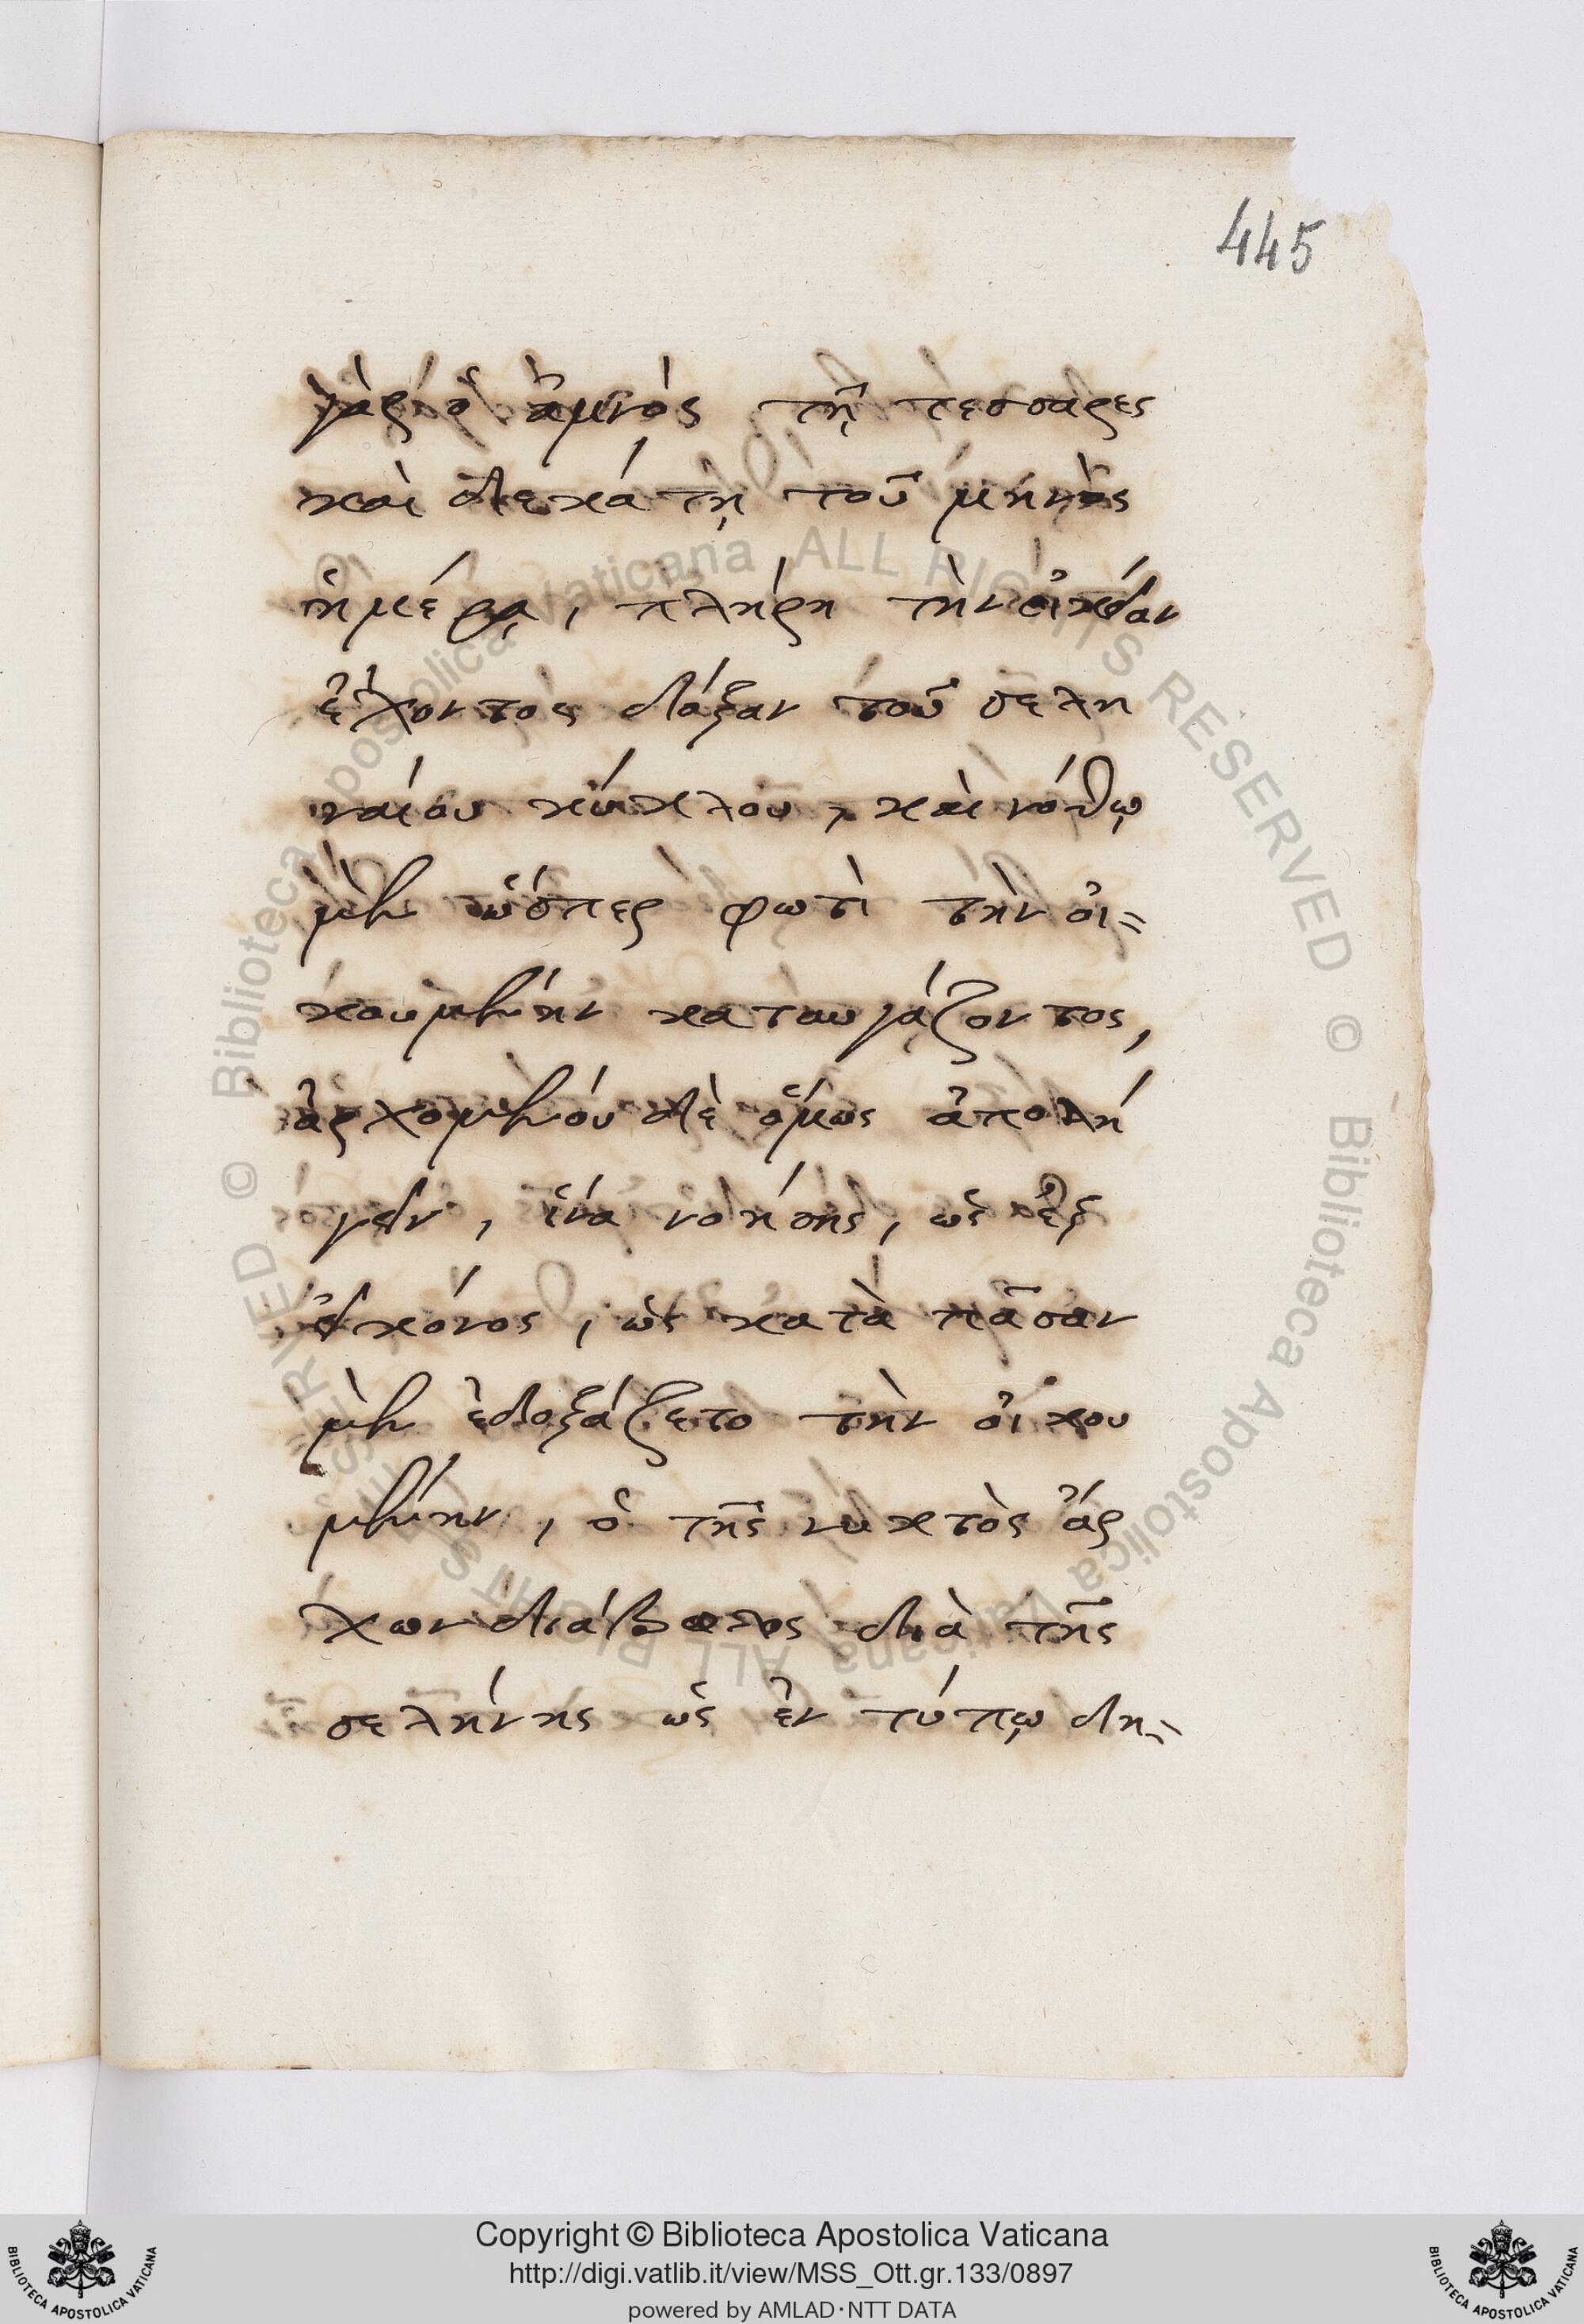 445
γὰρ ὁ ἀμνὸς τῇ τεσσαρες
και δεκάτῃ τοῦ μηνὸς
ἡμέρᾳ, πλήρη τὴν οἰκείαν
ἔχοντος δόξαν τοῦ σελη
ναίου κύκλου, καὶ νόθῳ
μὲν ὥσπερ φωτὶ τὴν οἰ=
κουμένην καταυγάζοντος,
ἀρχομένου δὲ ὅμως ἀπολή
γειν, ἵνα νοήσῃς, ὡς ἐξ
εἰκόνος, ὡς κατὰ πᾶσαν
μὲν ἐδοξάζετο τὴν οἰκου
μένην, ὁ τῆς νυκτὸς ἄρ
χων διάβολος διὰ τῆς
σελήνης ὡς ἐν τύπῳ δη=
© Biblioteca Apostolica Vaticana ALL RIGHTS RESERVED © Biblioteca Apostolica Vaticana ALL RIGHTS RESERVED
Copyright © Biblioteca Apostolica Vaticana
http://digi.vatlib.it/view/MSS_Ott.gr.133/0897
powered by AMLAD·NTT DATA
BIBLIOTECA APOSTOLICA VATICANA
BIBLIOTECA APOSTOLICA VATICANA